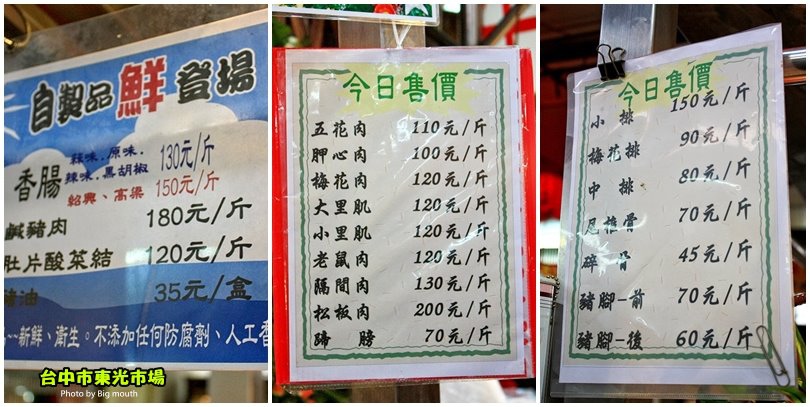 自製品 鮮 登場
香腸
蒜味.原味.
辣味.黑胡椒 130元/斤
紹興、高梁 150元/斤
鹹豬肉 180元/斤
肚片酸菜結 120元/斤
豬油 35元/盒
~~新鮮、衛生。不添加任何防腐劑、人工香
台中市東光市場
Photo by Big mouth
今日售價
五花肉 110元/斤
胛心肉 100元/斤
梅花肉 120元/斤
大里肌 120元/斤
小里肌 120元/斤
老鼠肉 120元/斤
隔間肉 130元/斤
松板肉 200元/斤
蹄 膀 70元/斤
今日售價
小 排 150元/斤
梅花排 90元/斤
中 排 80元/斤
尾椎骨 70元/斤
碎 骨 45元/斤
豬腳-前 70元/斤
豬腳-後 60元/斤